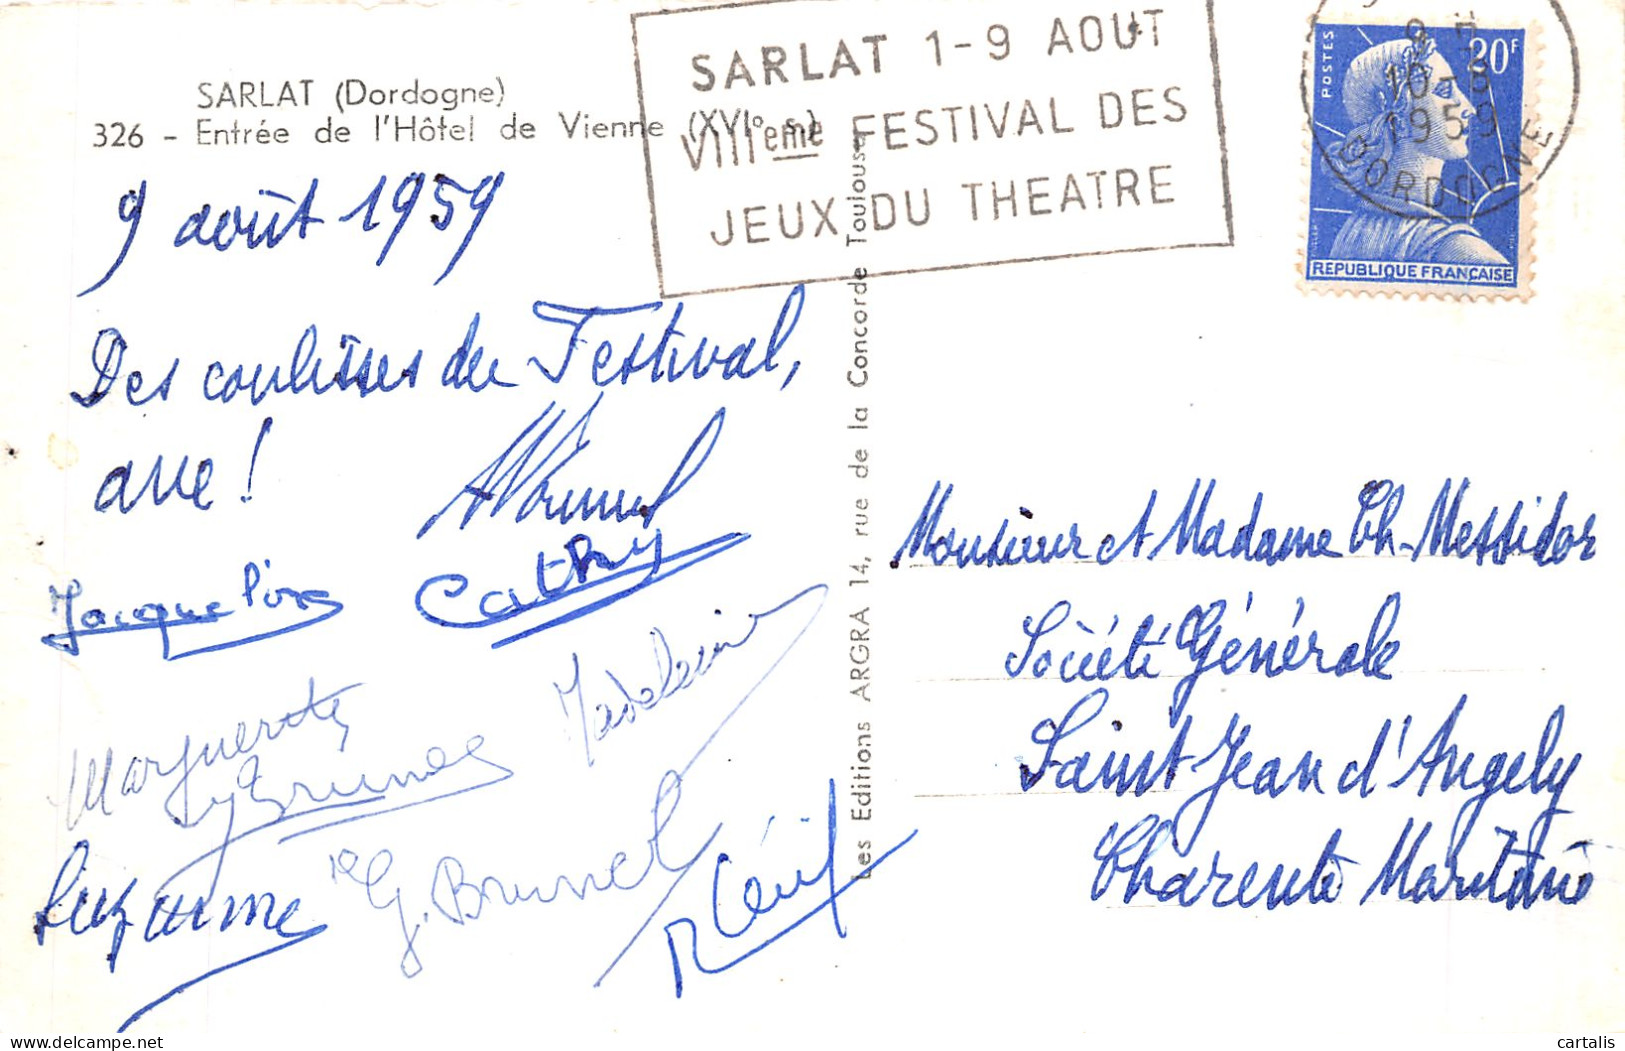 SARLAT (Dordogne)
326 - Entrée de l'Hôtel de Vienne (XVIe s.)
SARLAT 1-9 AOUT
VIIIeme FESTIVAL DES
JEUX DU THEATRE
POSTES
20F
REPUBLIQUE FRANÇAISE
9 -8
10
1959
DORDOGNE
9 août 1959
Des coulisses du Festival,
Jacqueline Cathy
Marguerite
Madeleine
Suzanne
G. Brunet
Les Editions ARGRA 14, rue de la Concorde Toulouse
Monsieur et Madame Ch. Messidor
Société Générale
Saint Jean d'Angely
Charente Maritime
delcampe.net
cartalis